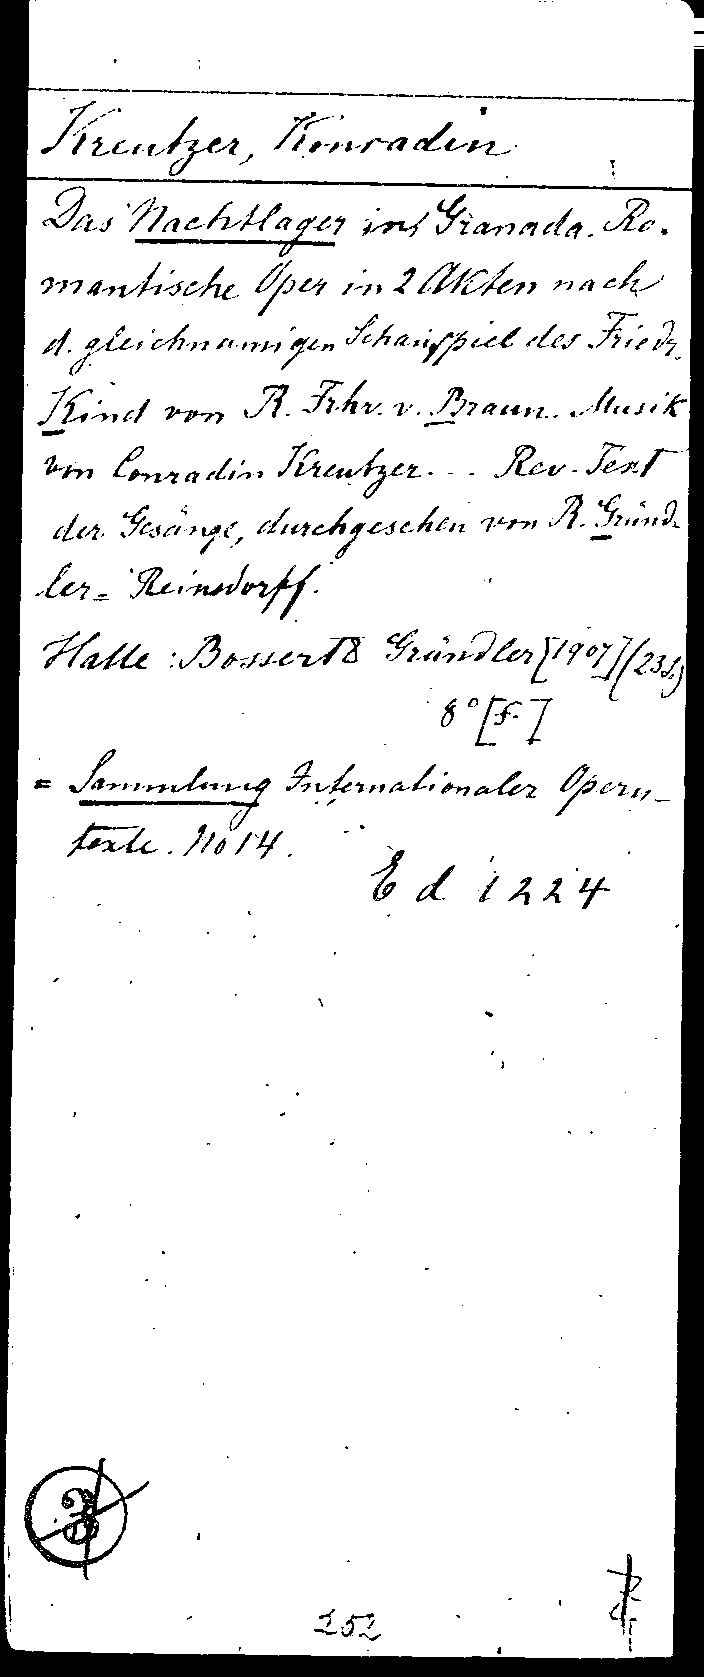 Kreutzer, Konradin
Das Nachtlager in Granada. Ro-
mantische Oper in 2 Akten nach
d. gleichnamigen Schauspiel des Friedr.
Kind von R. Frhr. v. Braun. Musik
von Conradin Kreutzer... Rev. Text
der Gesänge, durchgesehen von R. Gründ-
ler=Reinsdorff.
Halle: Bossert & Gründler [1907] (23 S.)
8° [f.]
= Sammlung Internationaler Opern-
texte. No 14.
Ed 1224
252